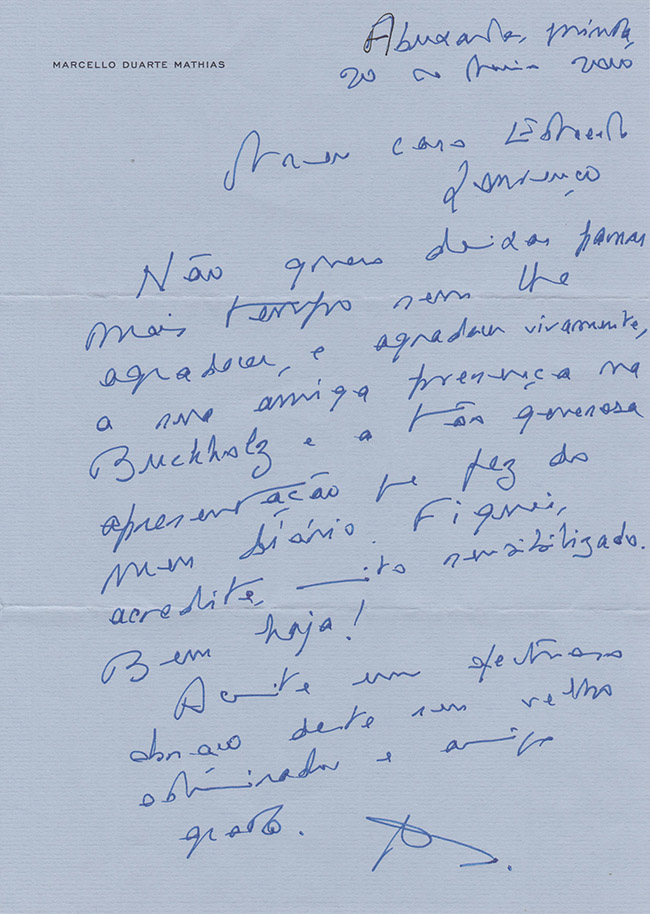 MARCELLO DUARTE MATHIAS
20 de Maio 2010
Meu caro Eduardo
Lourenço
Não quero deixar passar
mais tempo sem lhe
agradecer, e agradecer vivamente,
a sua amiga presença na
Buckholz e a tão generosa
apresentação que fez do
meu diário. Fiquei,
acredite, muito sensibilizado.
Bem haja!
Aceite um afectuoso
abraço deste seu velho
admirador e amigo
grato.